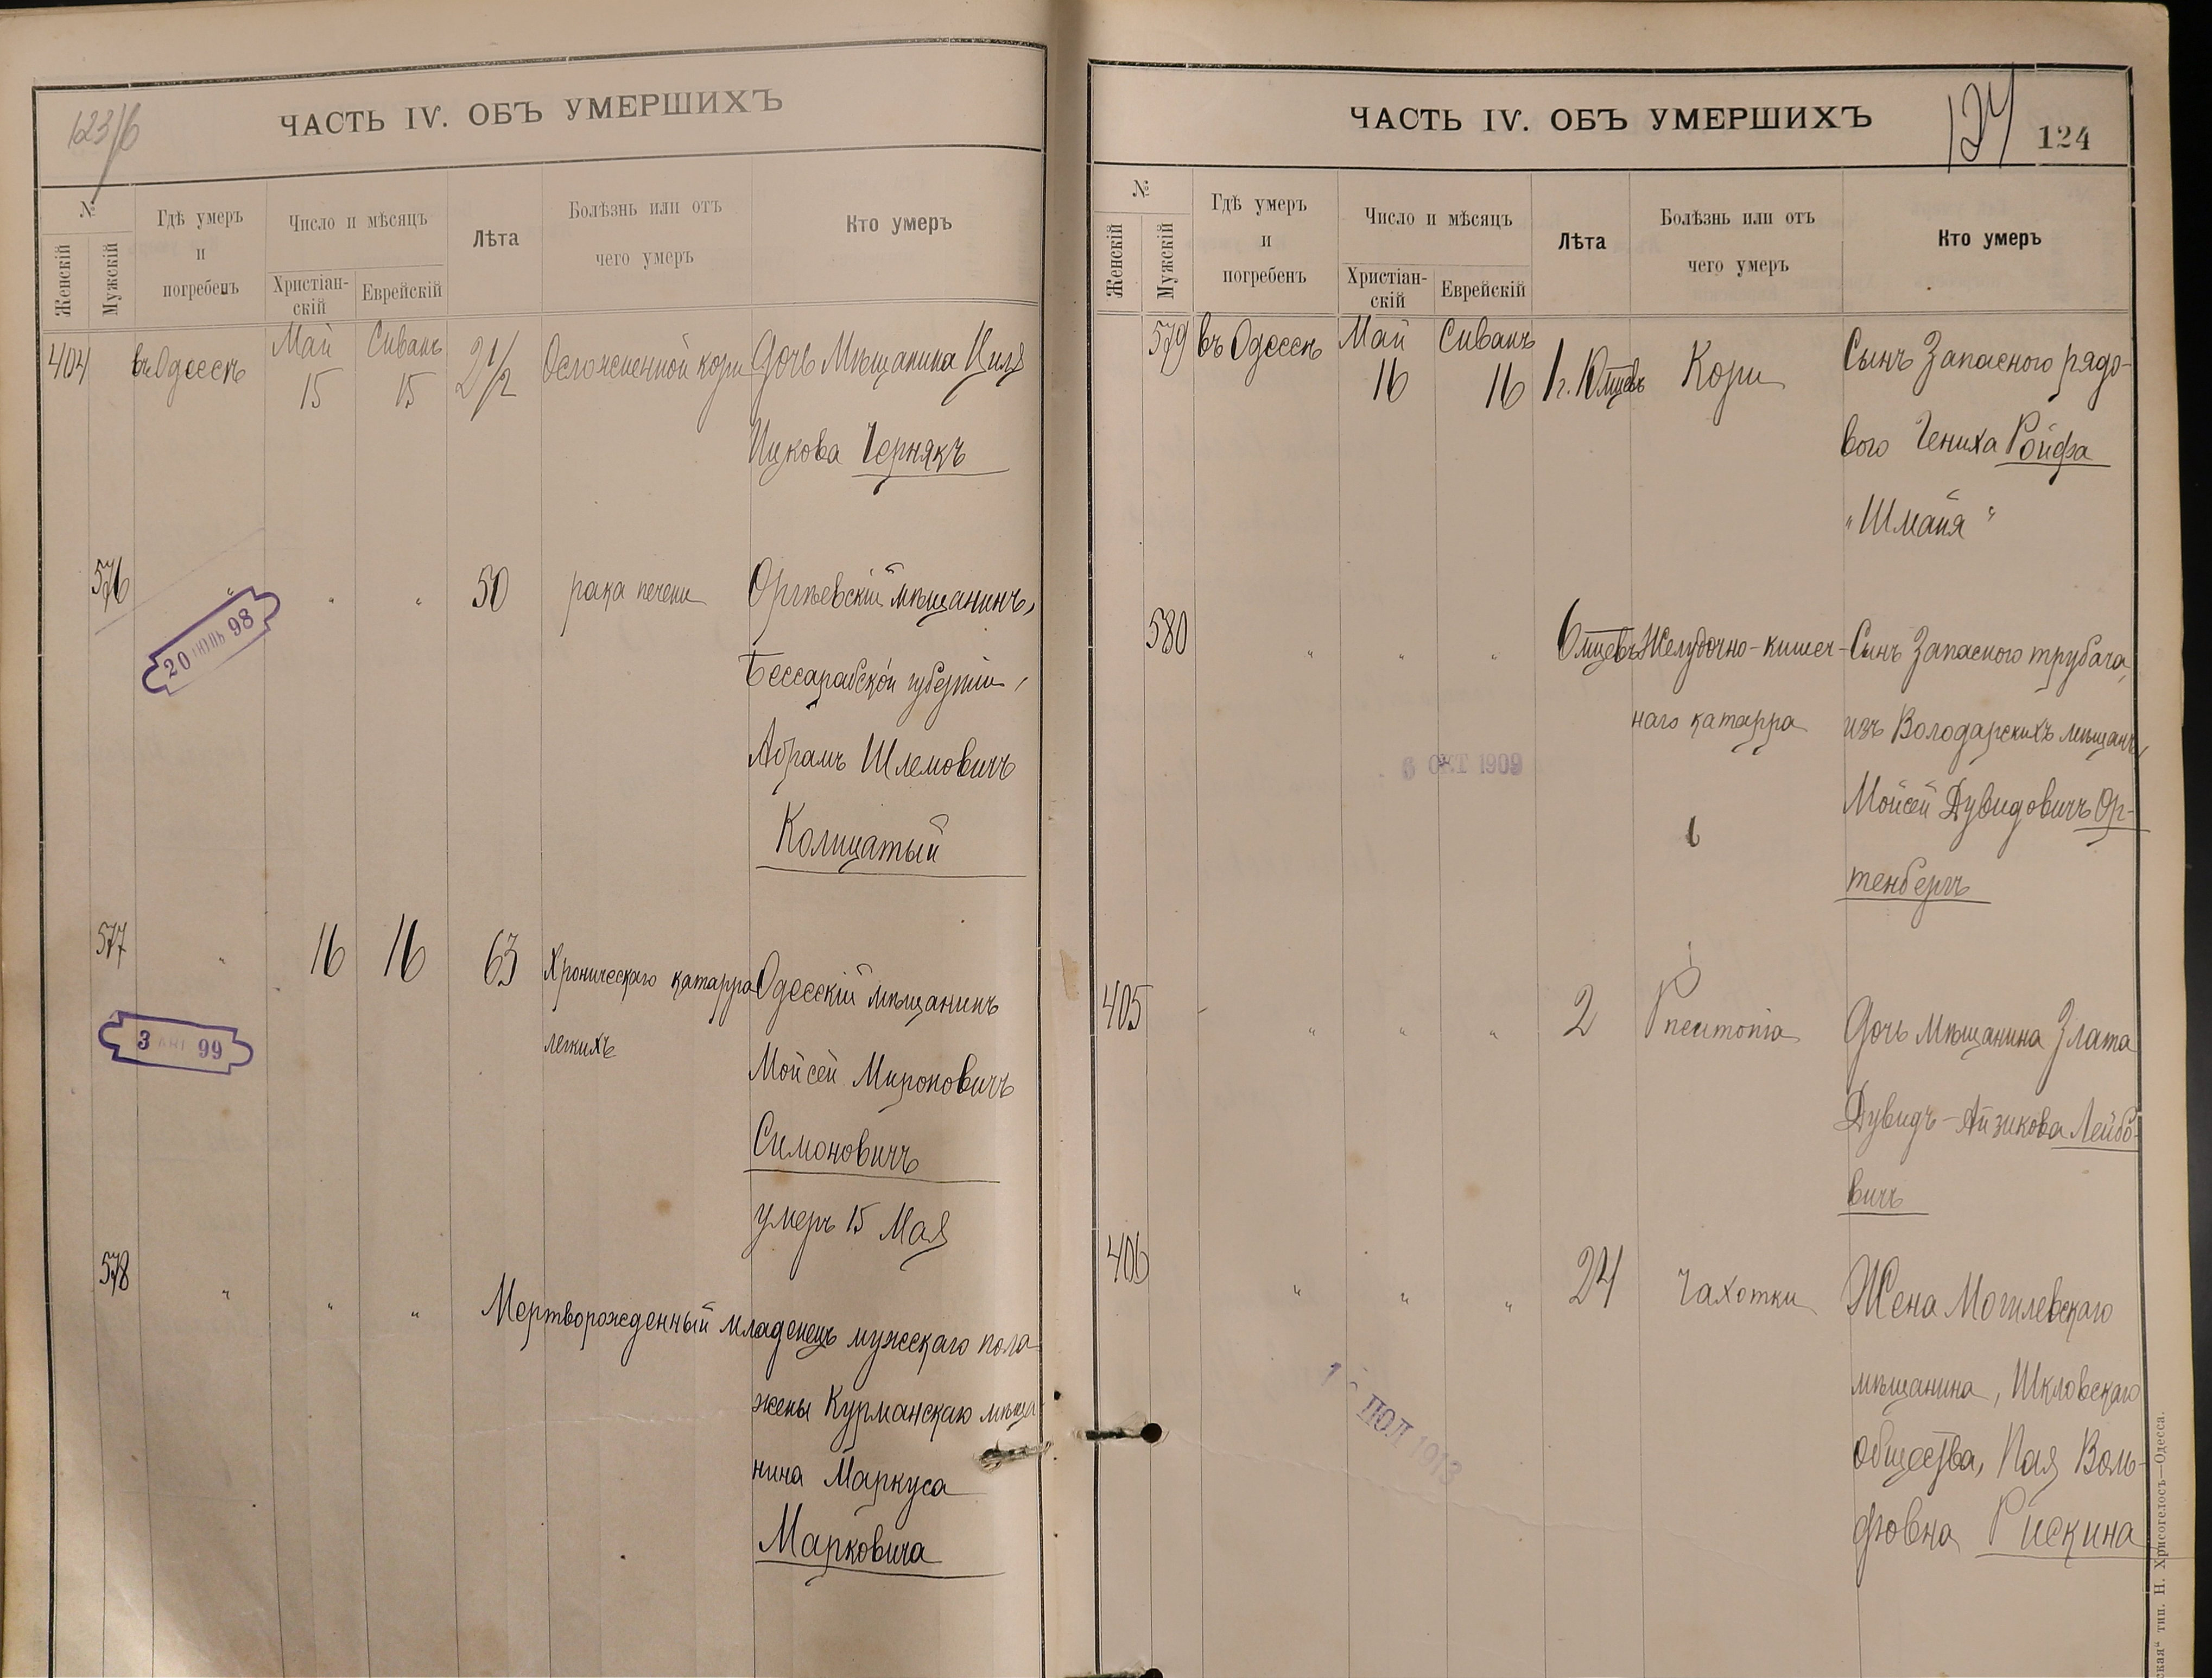 123/б
ЧАСТЬ IV. ОБЪ УМЕРШИХЪ
№
Женскій
Мужскій
Гдѣ умеръ
и
погребенъ
Число и мѣсяцъ
Христіан-
скій
Еврейскій
Лѣта
Болѣзнь или отъ
чего умеръ
Кто умеръ
404 въ Одессѣ Май 15 Сиванъ 15 2 1/2 Осложненной кори Дочь Мѣщанина Циля
Ицкова Чернякъ
576 " " " 50 рака печени Оргѣевскій мѣщанинъ,
Бессарабской губерніи,
Абрамъ Шлемовичъ
Колицатый
20 ІЮНЬ 98
577 " 16 16 63 Хроническаго катарра Одесскій мѣщанинъ
легкихъ
Мойсей Мироновичъ
Симоновичъ
умеръ 15 Мая
3 АВГ 99
578 " " " Мертворожденный младенецъ мужескаго пола
жены Курманскаго мѣща-
нина Маркуса
Марковича
ЧАСТЬ IV. ОБЪ УМЕРШИХЪ
124
124
№
Женскій
Мужскій
Гдѣ умеръ
и
погребенъ
Число и мѣсяцъ
Христіан-
скій
Еврейскій
Лѣта
Болѣзнь или отъ
чего умеръ
Кто умеръ
579 въ Одессѣ Май 16 Сиванъ 16 1 г. 10 мцевъ Кори Сынъ Запаснаго рядо-
вого Гениха Ройфа
"Шмаия"
580 " " " 6 мцевъ Желудочно-кишеч- Сынъ Запасного трубача,
наго катарра изъ Володарскихъ мѣщанъ,
6 ОКТ 1909
Мойсей Дувидовичъ Ор-
тенбергъ
405 " " " 2 Pneumonia Дочь Мѣщанина Злата
Дувидъ-Айзикова Лейбо-
вичъ
406 " " " 24 Чахотки Жена Могилевскаго
мѣщанина, Шкловскаго
общества, Пая Воль-
фовна Рискина
ІЮЛ 1913
ская" тип. Н. Хрисогелосъ—Одесса.